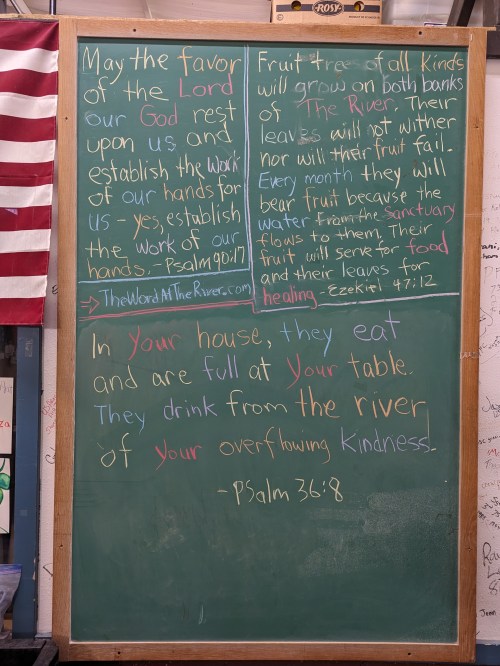 ROSY
May the favor
of the Lord
our God rest
upon us and
establish the work
of our hands for
us - yes, establish
the work of our
hands. - Psalm 90:17
⇒ TheWordAtTheRiver.com
Fruit tree of all Kinds
will grow on both banks
of The River. Their
leaves will not wither
nor will their fruit fail.
Every month they will
bear fruit because the
water from the Sanctuary
flows to them. Their
fruit will serve for food
and their leaves for
healing - Ezekiel 47:12
In your house, they eat
and are full at your table.
They drink from the river
of your overflowing kindness.
- Psalm 36:8